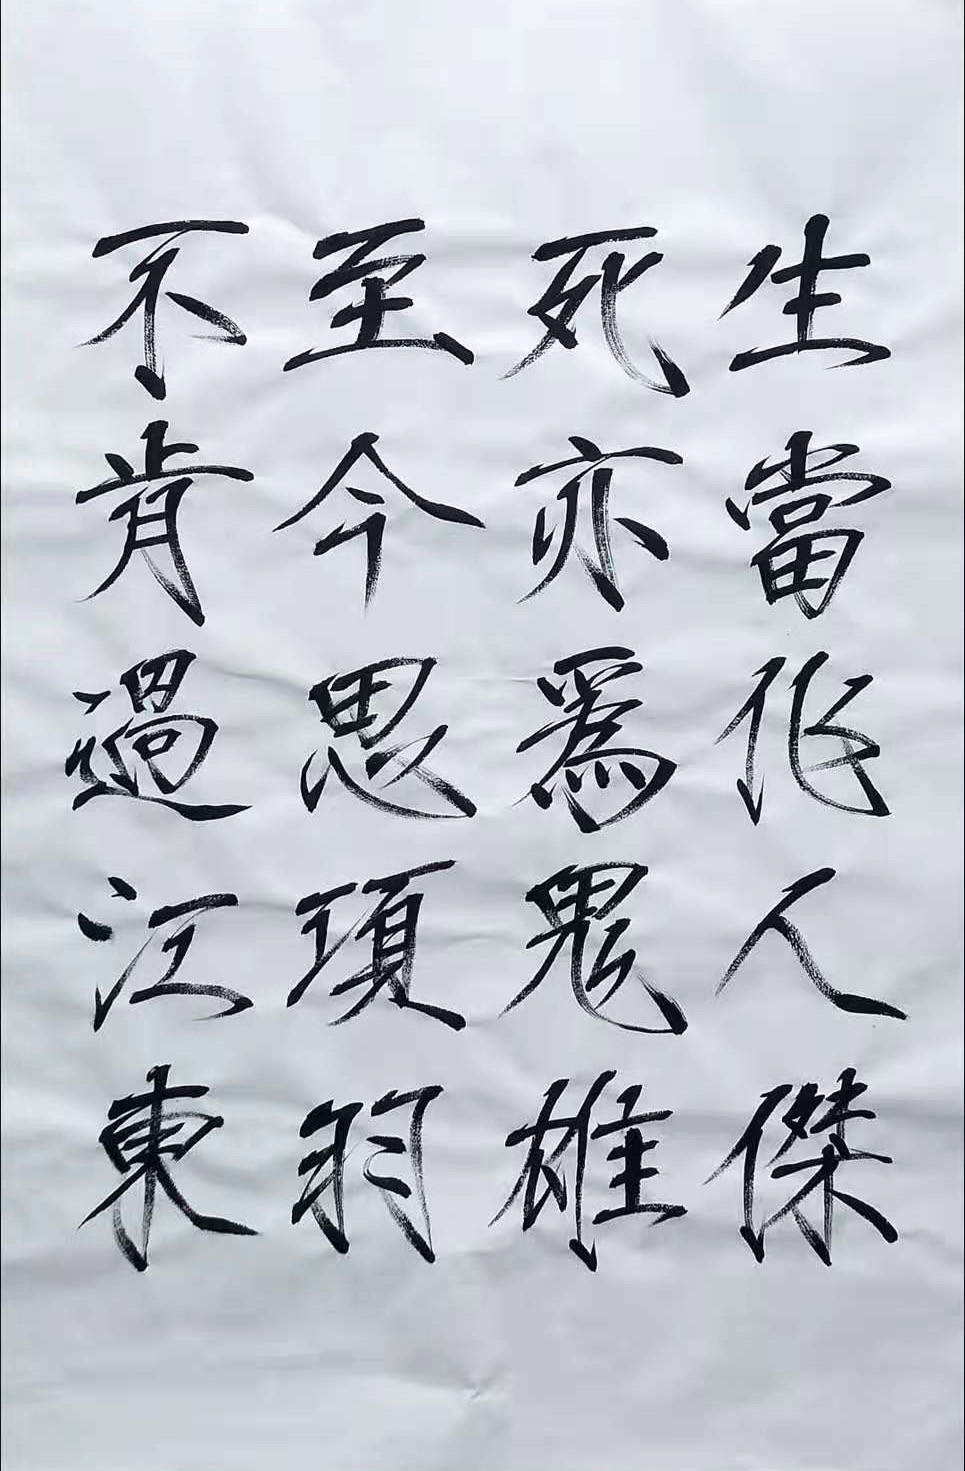 生當作人傑
死亦爲鬼雄
至今思項羽
不肯過江東